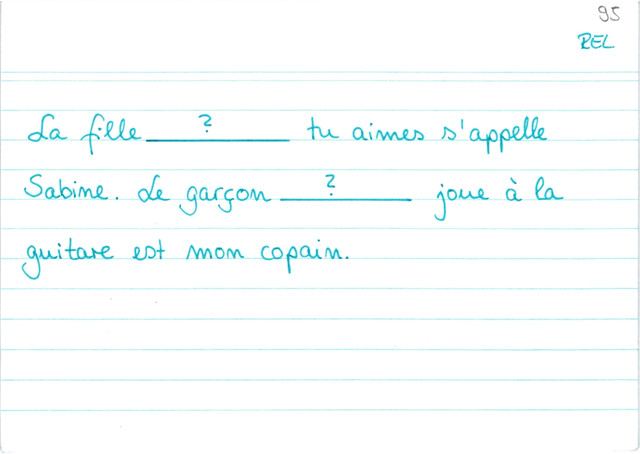 95
REL
La fille ___?___ tu aimes s'appelle
Sabine. Le garçon ___?___ joue à la
guitare est mon copain.